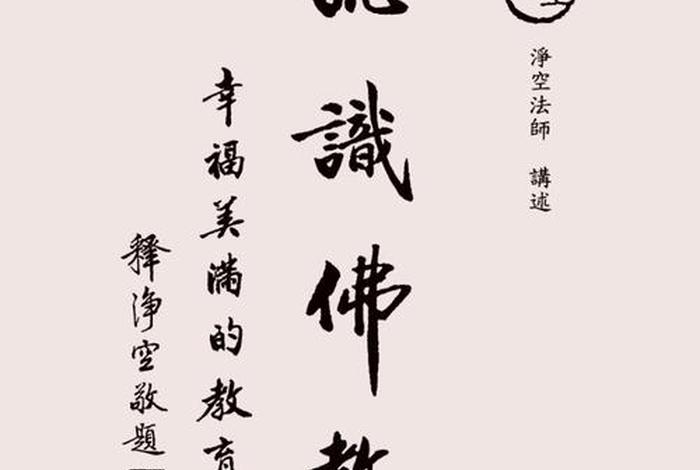 淨空法師 講述
識佛教
幸福美滿的教育
释淨空敬題